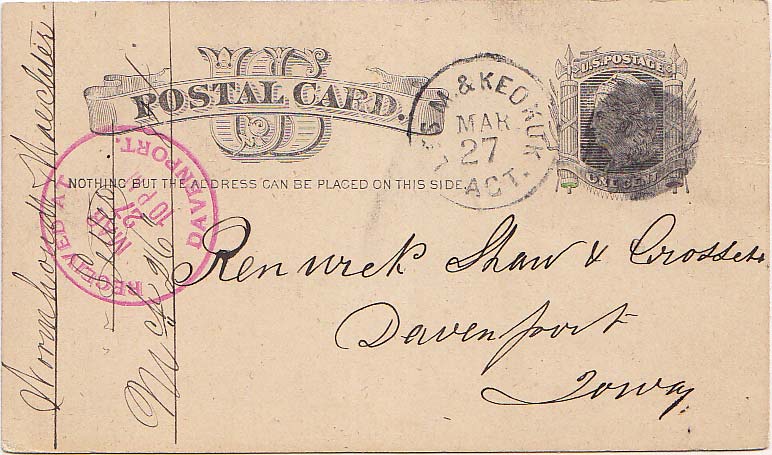 US
POSTAL CARD.
NOTHING BUT THE ADDRESS CAN BE PLACED ON THIS SIDE.
U.S. POSTAGE
ONE CENT
M. & KEOKUK
MAR
27
ACT.
RECEIVED AT
DAVENPORT.
MAR
27
10 PM
Renwick Shaw &
Davenport
Iowa